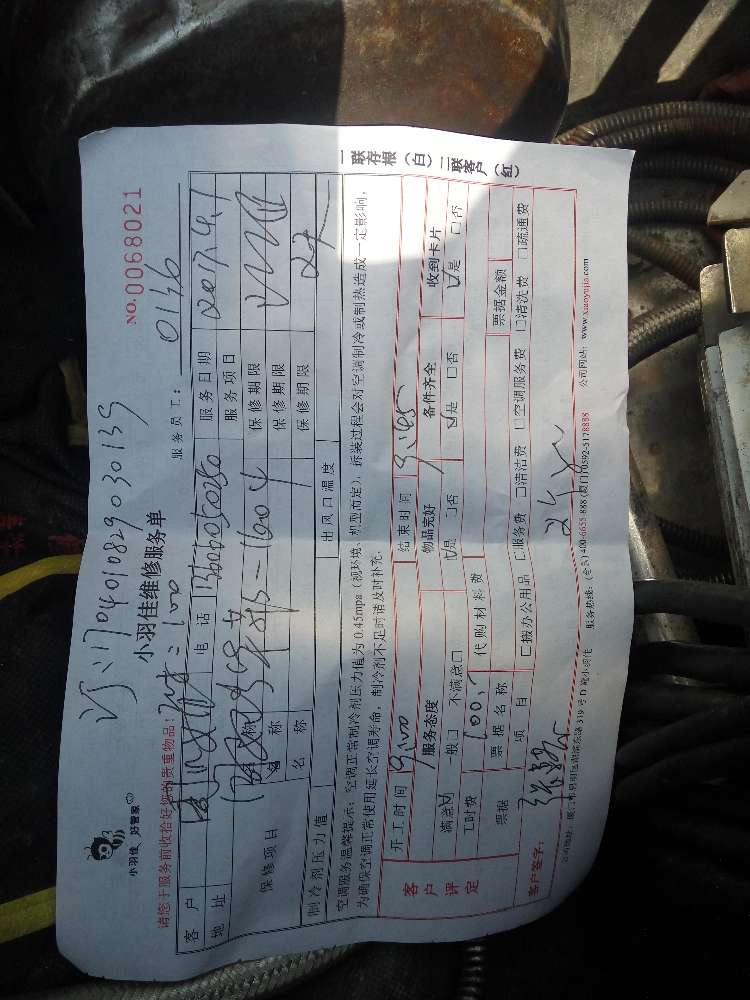 170401082903013S
小羽佳 好管家
小羽佳维修服务单
NO.0068021
请您于服务前收拾好您的贵重物品!
服务员工: 0126
客户 电话 服务日期 2017.4.1
地址 服务项目
保修项目 名称 保修期限
名称 保修期限
名称 保修期限
制冷剂压力值 出风口温度
空调服务温馨提示: 空调正常制冷剂压力值为 0.45mpa (视环境、机型而定), 拆装过程会对空调制冷或制热造成一定影响,
为确保空调正常使用延长空调寿命, 制冷剂不足时请及时补充.
一联存根(白) 二联客户(红)
客户评定
开工时间 9:00 结束时间 9:45
服务态度 物品完好 备件齐全 收到卡片
满意☑ 一般□ 不满意□ ☑是 □否 ☑是 □否 ☑是 □否
工时费 100. 代购材料费
票据 票据名称 票据金额
项目 □搬办公用品 □服务费 □清洁费 □空调服务费 □清洗费 □疏通费
客户签字:
公司地址: 厦门市思明区湖滨东路 319 号 D 座小羽佳 服务热线: (全国) 400-6655-888 (厦门) 0592-5178888 公司网站: www.xiaoyujia.com